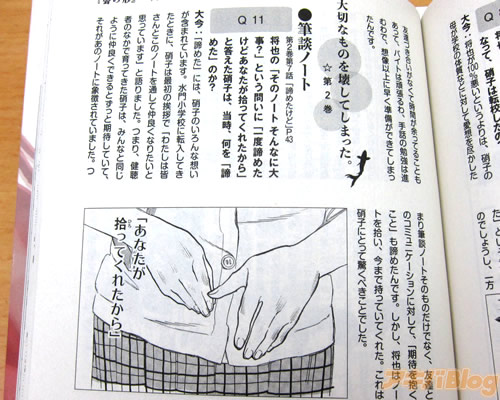 大切なものを壊してしまった。
☆第2巻
友達づき合いがなくて時間が余ってることも
あって、バイトは頑張るわ、手話の勉強は進
むわで、想像以上に早く準備ができてしまっ
たんです。
Q 11
●筆談ノート
第2巻第7話「諦めたけど」p43
将也の「そのノートそんなに大
事?」という問いに「一度諦めた
けどあなたが拾ってくれたから」
と答えた硝子は、当時、何を「諦
めた」のか?
大今:「諦めた」には、硝子のいろんな想い
が含まれています。水門小学校に転入してき
たときに、硝子は最初の挨拶で「わたしは皆
さんとこのノートを通して仲良くなりたいと
思っています」と語りました。つまり、健聴
者のなかで育ってきた硝子は、みんなと同じ
ように仲良くできるとずっと期待していて、
それがあのノートに象徴されていました。つ
まり筆談ノートそのものだけでなく、友達と
のコミュニケーションに対して、「期待を抱く
こと」も諦めたんです。しかし、将也はノー
トを拾い、今まで持っていてくれた。これは
硝子にとって驚くべきことでした。
「あなたが
拾ってくれたから」
ひろ